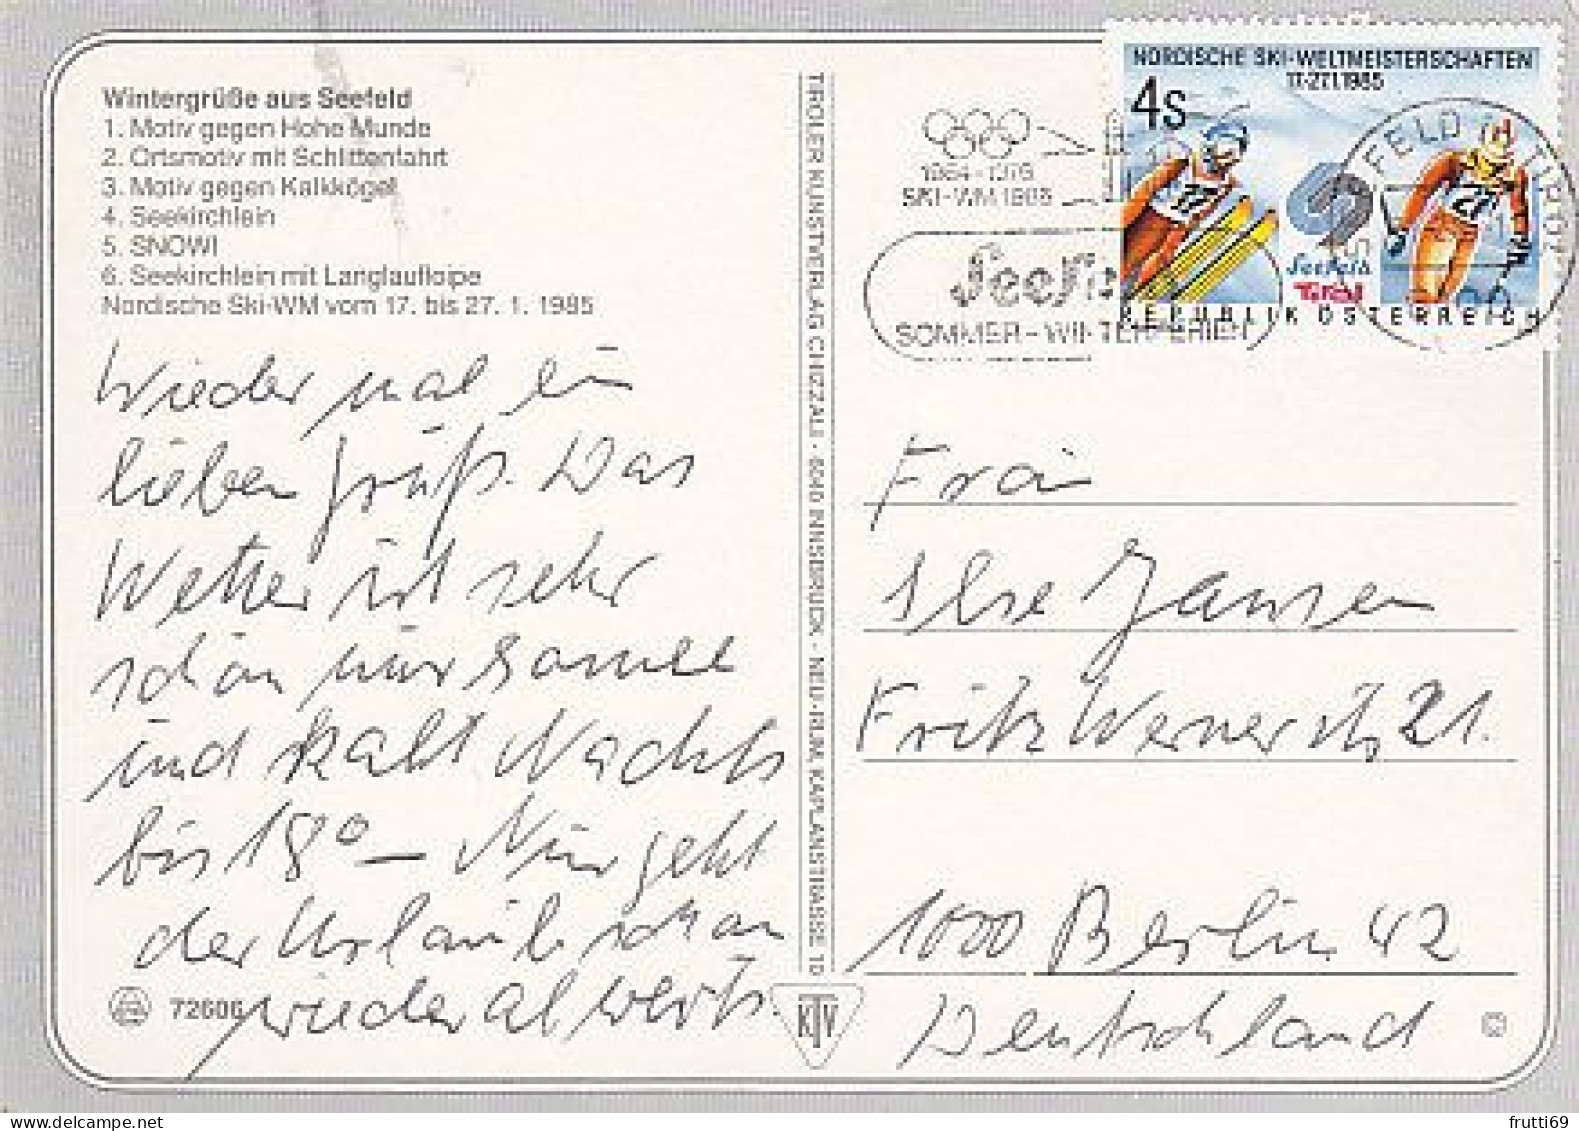 Wintergrüße aus Seefeld
1. Motiv gegen Hohe Munde
2. Ortsmotiv mit Schlittenfahrt
3. Motiv gegen Kalkkögel
4. Seekirchlein
5. SNOWI
6. Seekirchlein mit Langlaufloipe
Nordische Ski-WM vom 17. bis 27. 1. 1985
Wieder mal ein
lieben Gruß. Das
Wetter ist sehr
schön nur Sonne
und kalt Nachts
bis 18° – Nur geht
der Urlaub schon
wieder abwärts.
72606
TIROLER KUNSTVERLAG CHIZZALI · 6040 INNSBRUCK - NEU-RUM, KAPLANSTRASSE 10
KTV
1964 - 1976
SKI-WM 1985
Seefeld
SOMMER - WINTERFERIEN
NORDISCHE SKI-WELTMEISTERSCHAFTEN
17.-27.1.1985
4S
Seefeld
Tirol
REPUBLIK ÖSTERREICH
FELD TIROL
Frau
Ilse Jansen
Fritz Wernerstr. 21.
1000 Berlin 42
Deutschland
©
frutti69